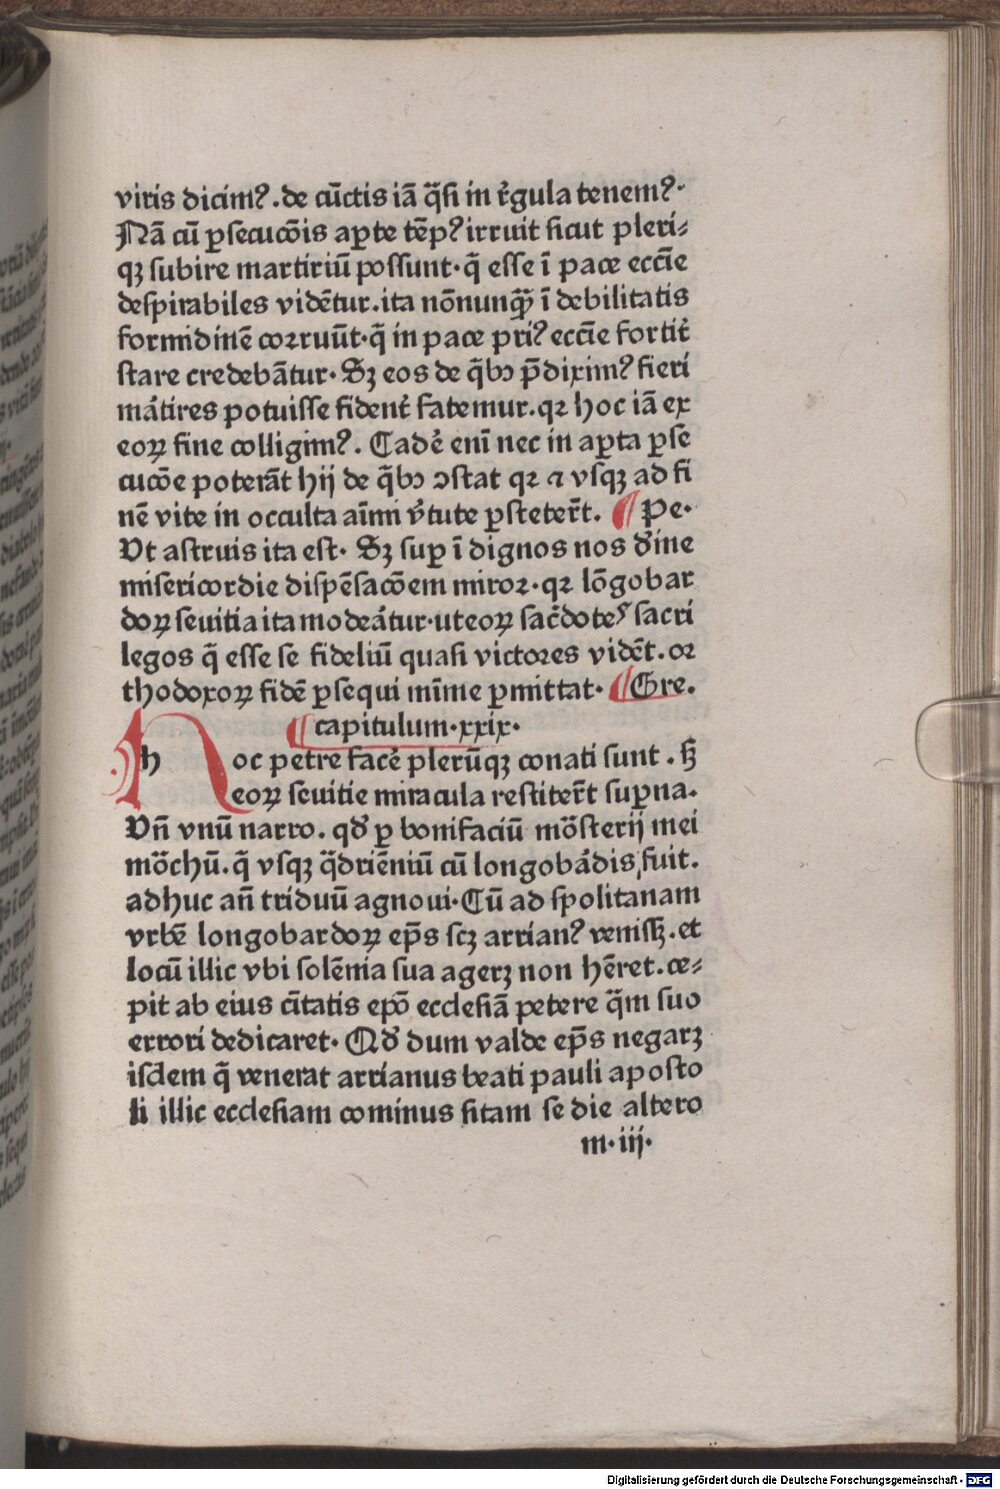 viris dicimꝰ. de cūctis iā q̄si in r̄gula tenemꝰ·
Nā cū ꝑsecucōis aꝑte tēpꝰ irruit sicut pleri⸗
qꝫ subire martiriū possunt· q̄ esse ī pace eccīe
despirabiles vidētur. ita nōnunq̄ꝫ ī debilitatis
formidinē corruūt· q̄ in pace priꝰ eccīe fortit̄
stare credebātur· Sꝫ eos de q̄bꝫ p̄diximꝰ fieri
mātires potuisse fident̄ fatemur. qꝛ hoc iā ex
eoꝝ fine colligimꝰ. Cadē enī nec in aꝑta ꝑse
cucōe poterāt hij de q̄bꝫ ꝯstat qꝛ ⁊ vsqꝫ ad fi
nē vite in occulta aīmi v̄tute ꝑstetēt. ¶ Pe·
Vt astruis ita est· Sꝫ suꝑ ī dignos nos d̄ine
misericordie dispēsacōem miror· qꝛ lōgobar
doꝝ seuitia ita modeātur· ut eoꝝ sac̄dotes sacri
legos q̄ esse se fideliū quasi victores vidēt. or
thodoxoꝝ fidē ꝑsequi mīme ꝑmittat· ¶ Gre.
¶ capitulum·xxix·
hoc petre facē plerūqꝫ conati sunt . sꝫ
eoꝝ seuitie miracula restitēt suꝑna.
Vn̄ vnū narro. qd̄ ꝑ bonifaciū mōsterij mei
mōchū. q̄ vsqꝫ q̄driēniū cū longobādis fuit.
adhuc an̄ triduū agnoui· Cū ad spolitanam
vrbē longobardoꝝ ep̄s scꝫ arrianꝰ venissꝫ. et
locū illic vbi solēnia sua agerꝫ non hēret. ce⸗
pit ab eius cītatis epō ecclesiā petere q̄m suo
errori dedicaret· Qd̄ dum valde ep̄s negarꝫ
isdem q̄ venerat arrianus beati pauli aposto
li illic ecclesiam cominus sitam se die altero
m·iij·
Digitalisierung gefördert durch die Deutsche Forschungsgemeinschaft · DFG